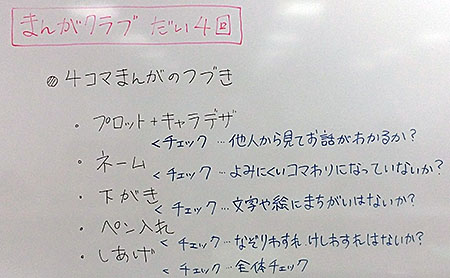 まんがクラブ だい4回
◎4コマまんがのつづき
・プロット+キャラデザ
<チェック…他人から見てお話がわかるか?
・ネーム
<チェック…よみにくいコマわりになっていないか?
・下がき
<チェック…文字や絵にまちがいはないか?
・ペン入れ
<チェック…なぞりわすれ けしわすれはないか?
・しあげ
<チェック…全体チェック